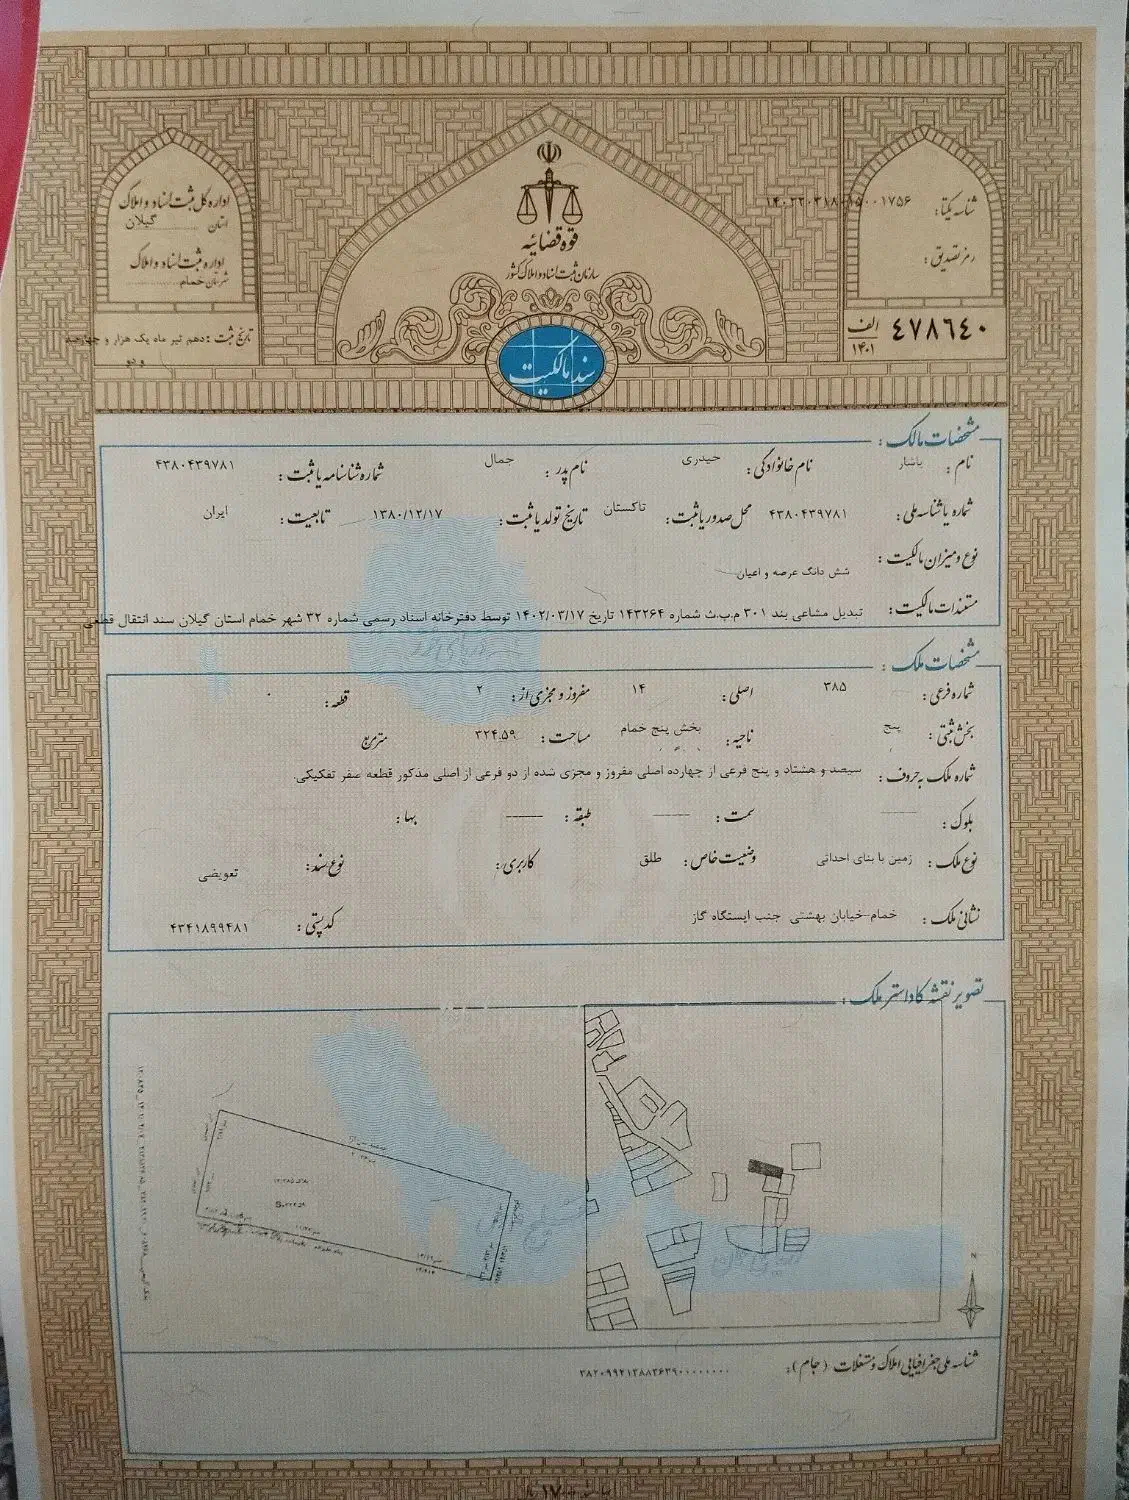 قوه قضائیه
سازمان ثبت اسناد و املاک کشور
سند مالکیت
شناسه یکتا: ۱۴۰۲۲۰۳۱۸۰۱۵۰۰۱۷۵۶
رمز تصدیق:
۴۷۸۶۴۰ الف ۱۴۰۱
اداره کل ثبت اسناد و املاک
استان گیلان
اداره ثبت اسناد و املاک
شهرستان خمام
تاریخ ثبت: دهم تیر ماه یک هزار و چهارصد
و دو
مشخصات مالک:
نام: یاشار نام خانوادگی: حیدری نام پدر: جمال شماره شناسنامه یا ثبت: ۴۳۸۰۴۳۹۷۸۱
شماره یا شناسه ملی: ۴۳۸۰۴۳۹۷۸۱ محل صدور یا ثبت: تاکستان تاریخ تولد یا ثبت: ۱۳۸۰/۱۲/۱۷ تابعیت: ایران
نوع و میزان مالکیت: شش دانگ عرصه و اعیان
مستندات مالکیت: تبدیل مشاعی بند ۳۰۱ م.ب.ث شماره ۱۴۳۲۶۴ تاریخ ۱۴۰۲/۰۳/۱۷ توسط دفترخانه اسناد رسمی شماره ۳۲ شهر خمام استان گیلان سند انتقال قطعی
مشخصات ملک:
شماره فرعی: ۳۸۵ اصلی: ۱۴ مفروز و مجزی از: ۲ قطعه: ۰
بخش ثبتی: پنج ناحیه: بخش پنج خمام مساحت: ۳۲۴.۵۹ مترمربع
شماره ملک به حروف: سیصد و هشتاد و پنج فرعی از چهارده اصلی مفروز و مجزی شده از دو فرعی از اصلی مذکور قطعه صفر تفکیکی.
بلوک: سمت: طبقه: بها:
نوع ملک: زمین با بنای احداثی وضعیت خاص: طلق کاربری: نوع سند: تعویضی
نشانی ملک: خمام-خیابان بهشتی جنب ایستگاه گاز کد پستی: ۴۳۴۱۸۹۹۴۸۱
تصویر نقشه کاداستر ملک:
پلاک ۱۴/۳۸۵
S=۳۲۴.۵۹
N
شناسه ملی جغرافیایی املاک و مستغلات (جام): ۳۸۲۰۹۹۲۱۳۸۸۳۶۳۹۰۰۰۰۰۰۰۰۰